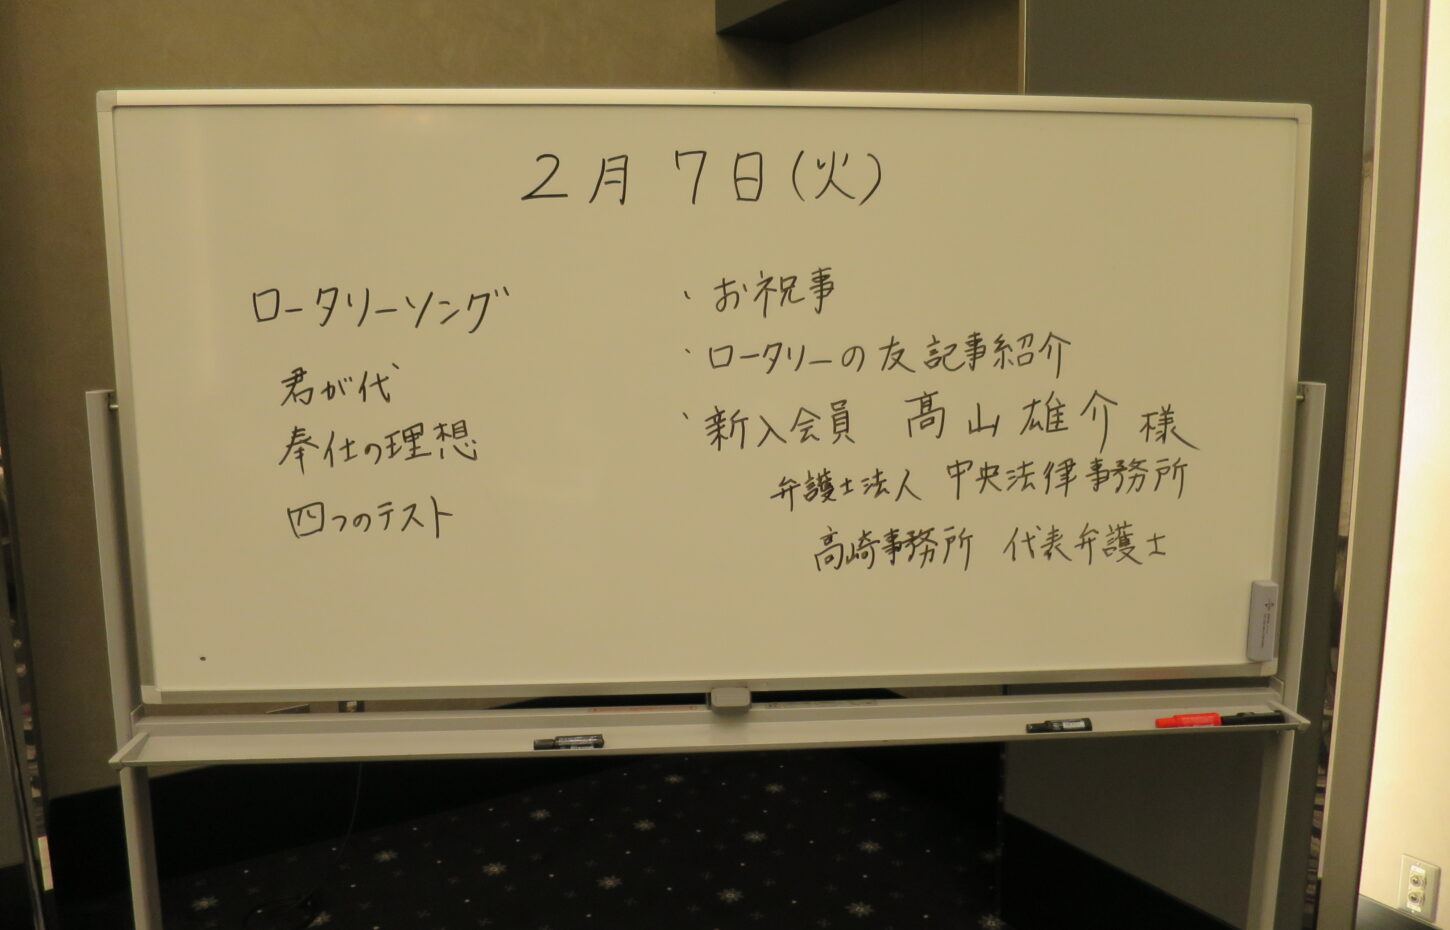 2月7日(火)
ロータリーソング
君が代
奉仕の理想
四つのテスト
・お祝事
・ロータリーの友 記事紹介
・新入会員 髙山雄介様
弁護士法人 中央法律事務所
高崎事務所 代表弁護士